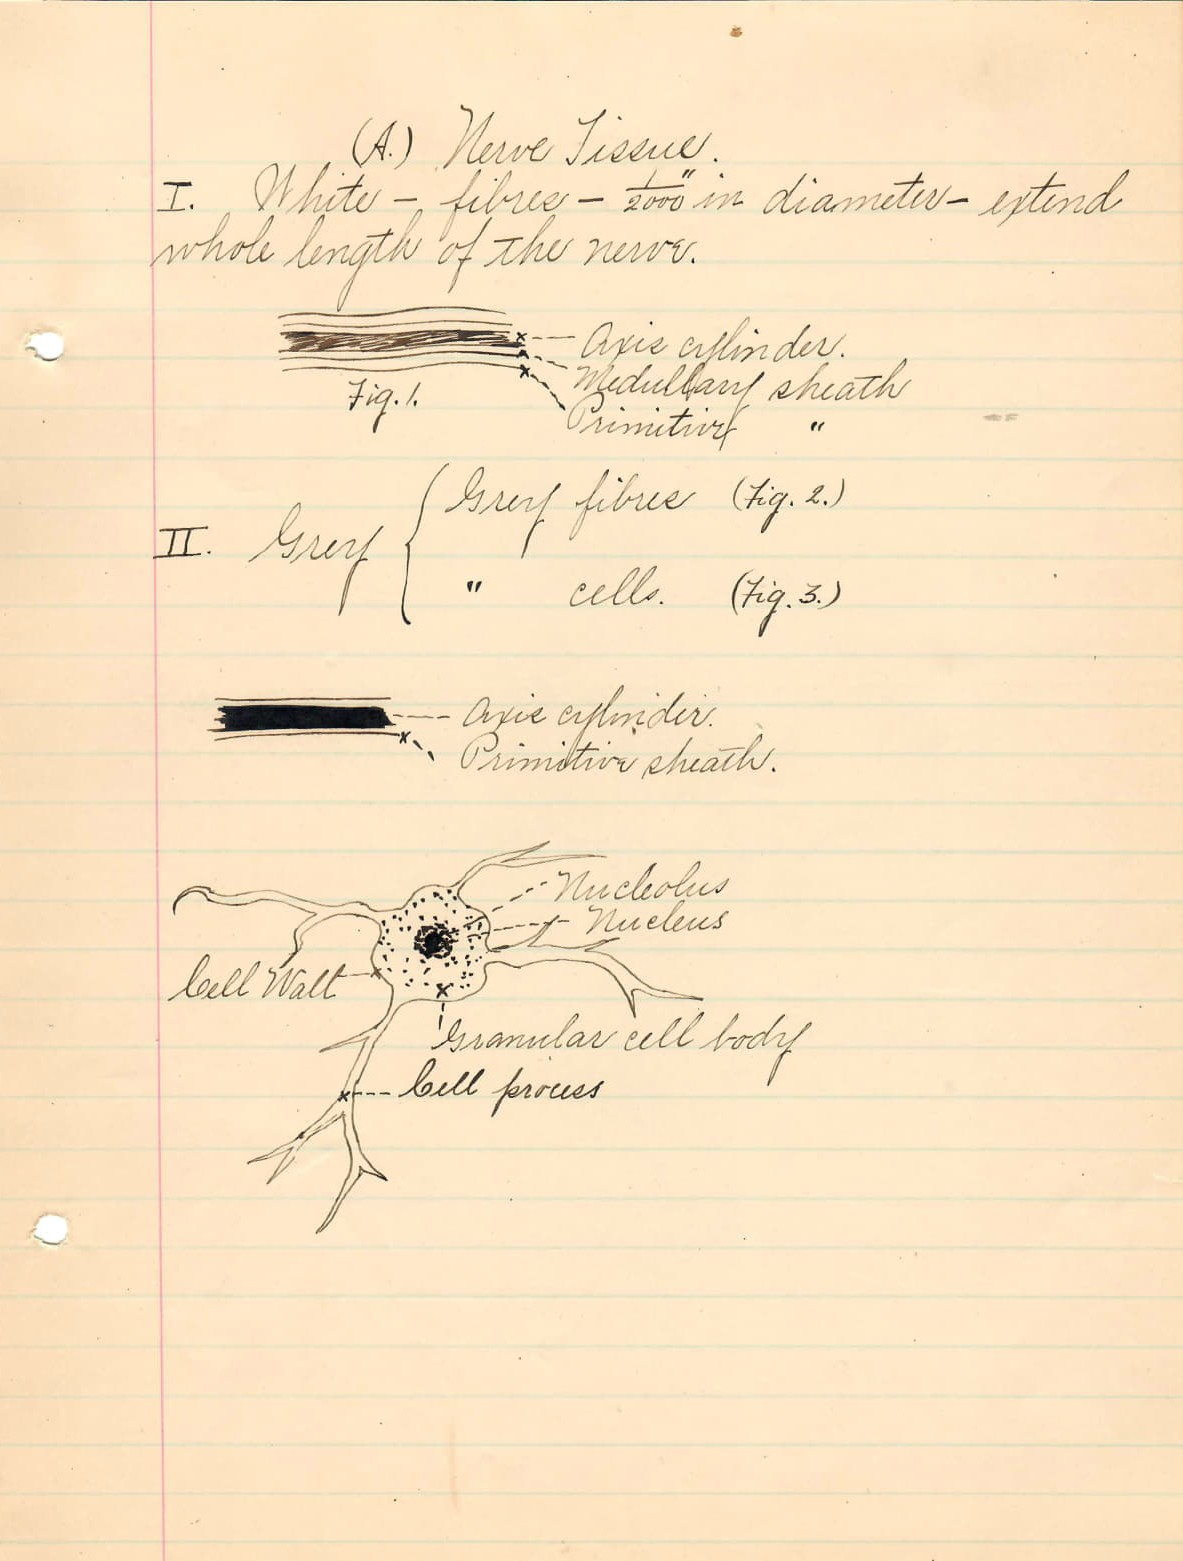 (A.) Nerve Tissue.
I. White - fibres - 1/2000" in diameter - extend
whole length of the nerve.
Axis cylinder.
Medullary sheath
Fig. 1.
Primitive "
II. Grey { Grey fibres (Fig. 2.)
" cells. (Fig. 3.)
Axis cylinder.
Primitive sheath.
Nucleolus
Nucleus
Cell Wall
Granular cell body
Cell process